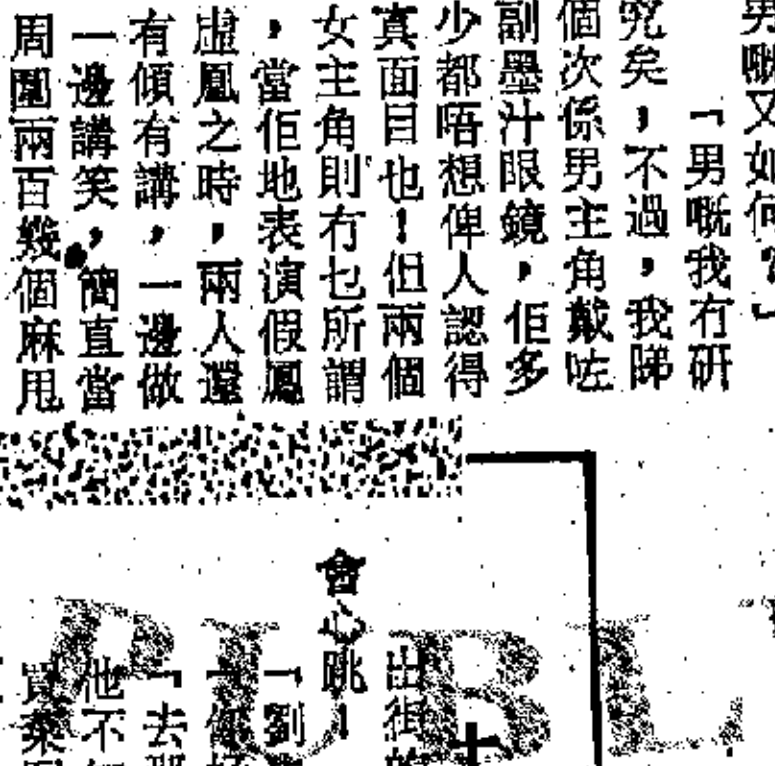 男嘅又如何？」
「男嘅我冇研
究矣，不過，我睇
個次係男主角戴咗
副墨汁眼鏡，佢多
少都唔想俾人認得
真面目也！但兩個
女主角則冇乜所謂
，當佢地表演假鳳
虛凰之時，兩人還
有傾有講，一邊做
一邊講笑，簡直當
周圍兩百幾個麻甩
出街
會心跳！
「劉
「去
他不
買菜
PUBL